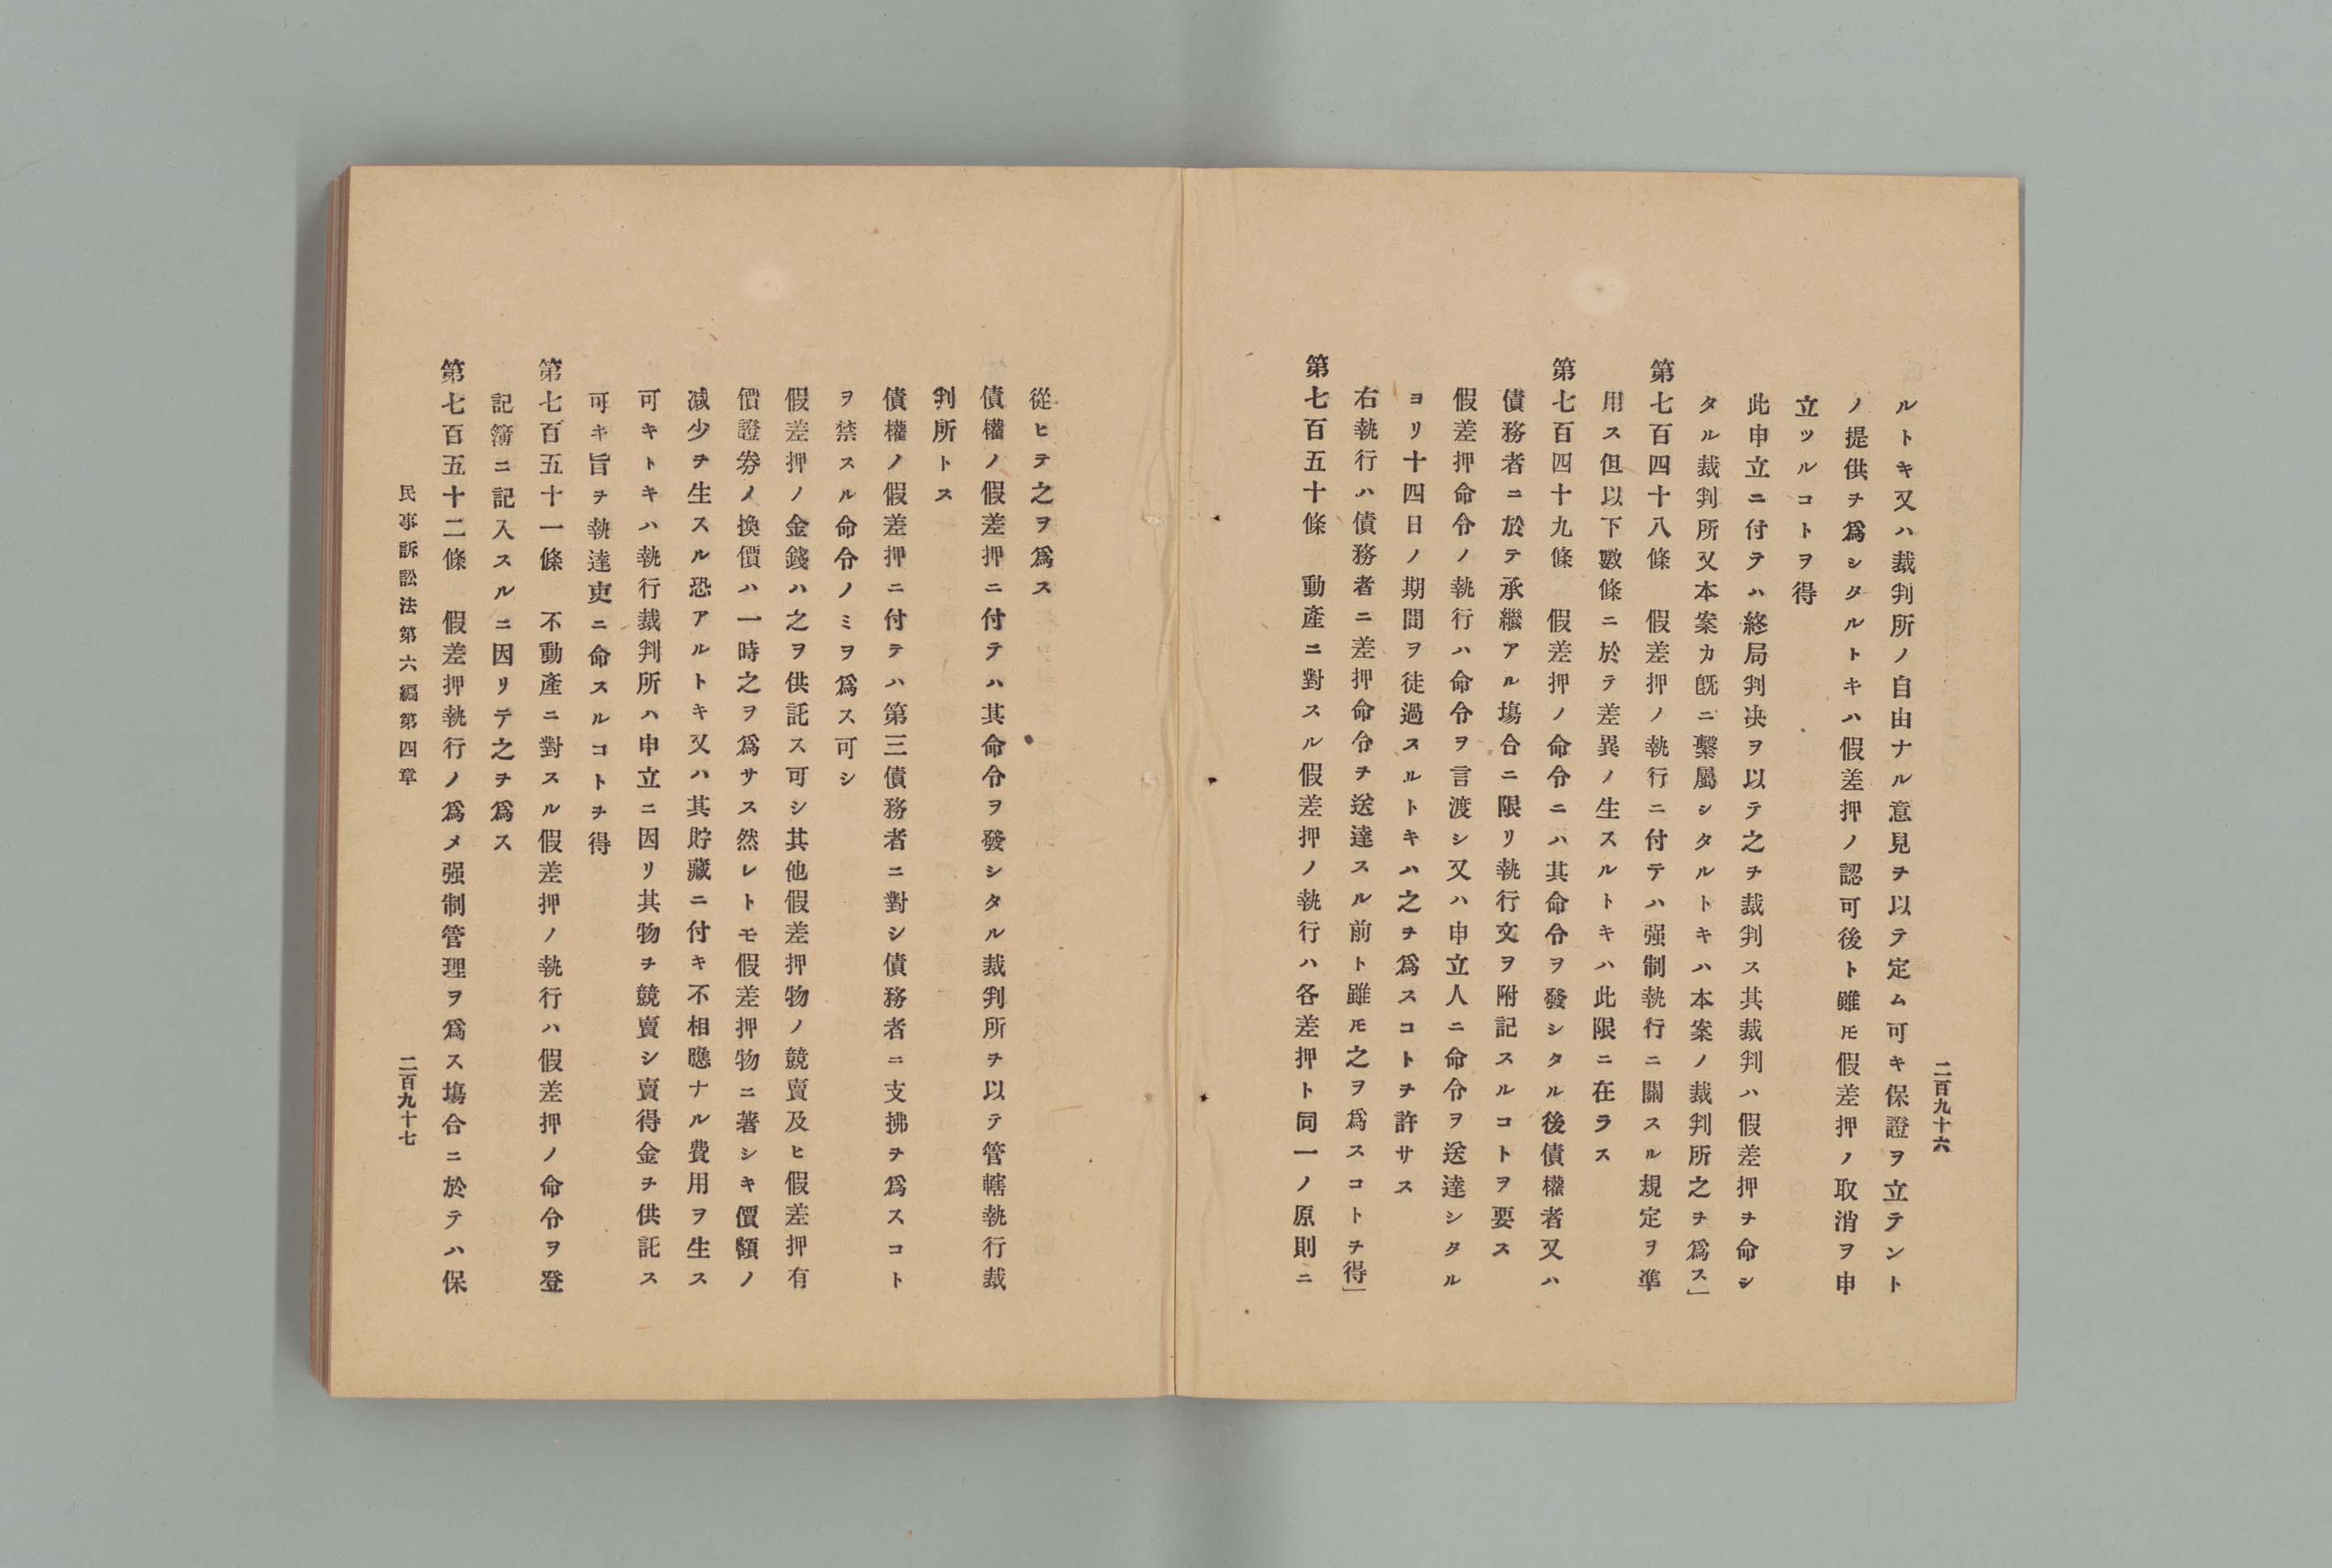 二百九十六
ルトキ又ハ裁判所ノ自由ナル意見ヲ以テ定ム可キ保證ヲ立テント
ノ提供ヲ爲シタルトキハ假差押ノ認可後ト雖モ假差押ノ取消ヲ申
立ツルコトヲ得
此申立ニ付テハ終局判决ヲ以テ之ヲ裁判ス其裁判ハ假差押ヲ命シ
タル裁判所又本案カ旣ニ繫屬シタルトキハ本案ノ裁判所之ヲ爲ス」
第七百四十八條　假差押ノ執行ニ付テハ强制執行ニ關スル規定ヲ準
用ス但以下數條ニ於テ差異ノ生スルトキハ此限ニ在ラス
第七百四十九條　假差押ノ命令ニハ其命令ヲ發シタル後債權者又ハ
債務者ニ於テ承繼アル塲合ニ限リ執行文ヲ附記スルコトヲ要ス
假差押命令ノ執行ハ命令ヲ言渡シ又ハ申立人ニ命令ヲ送達シタル
ヨリ十四日ノ期間ヲ徒過スルトキハ之ヲ爲スコトヲ許サス
右執行ハ債務者ニ差押命令ヲ送達スル前ト雖モ之ヲ爲スコトヲ得」
第七百五十條　動產ニ對スル假差押ノ執行ハ各差押ト同一ノ原則ニ
從ヒテ之ヲ爲ス
債權ノ假差押ニ付テハ其命令ヲ發シタル裁判所ヲ以テ管轄執行裁
判所トス
債權ノ假差押ニ付テハ第三債務者ニ對シ債務者ニ支拂ヲ爲スコト
ヲ禁スル命令ノミヲ爲ス可シ
假差押ノ金錢ハ之ヲ供託ス可シ其他假差押物ノ競賣及ヒ假差押有
價證券ノ換價ハ一時之ヲ爲サス然レトモ假差押物ニ著シキ價額ノ
减少ヲ生スル恐アルトキ又ハ其貯藏ニ付キ不相應ナル費用ヲ生ス
可キトキハ執行裁判所ハ申立ニ因リ其物ヲ競賣シ賣得金ヲ供託ス
可キ旨ヲ執達吏ニ命スルコトヲ得
第七百五十一條　不動產ニ對スル假差押ノ執行ハ假差押ノ命令ヲ登
記簿ニ記入スルニ因リテ之ヲ爲ス
第七百五十二條　假差押執行ノ爲メ强制管理ヲ爲ス塲合ニ於テハ保
民事訴訟法第六編第四章
二百九十七